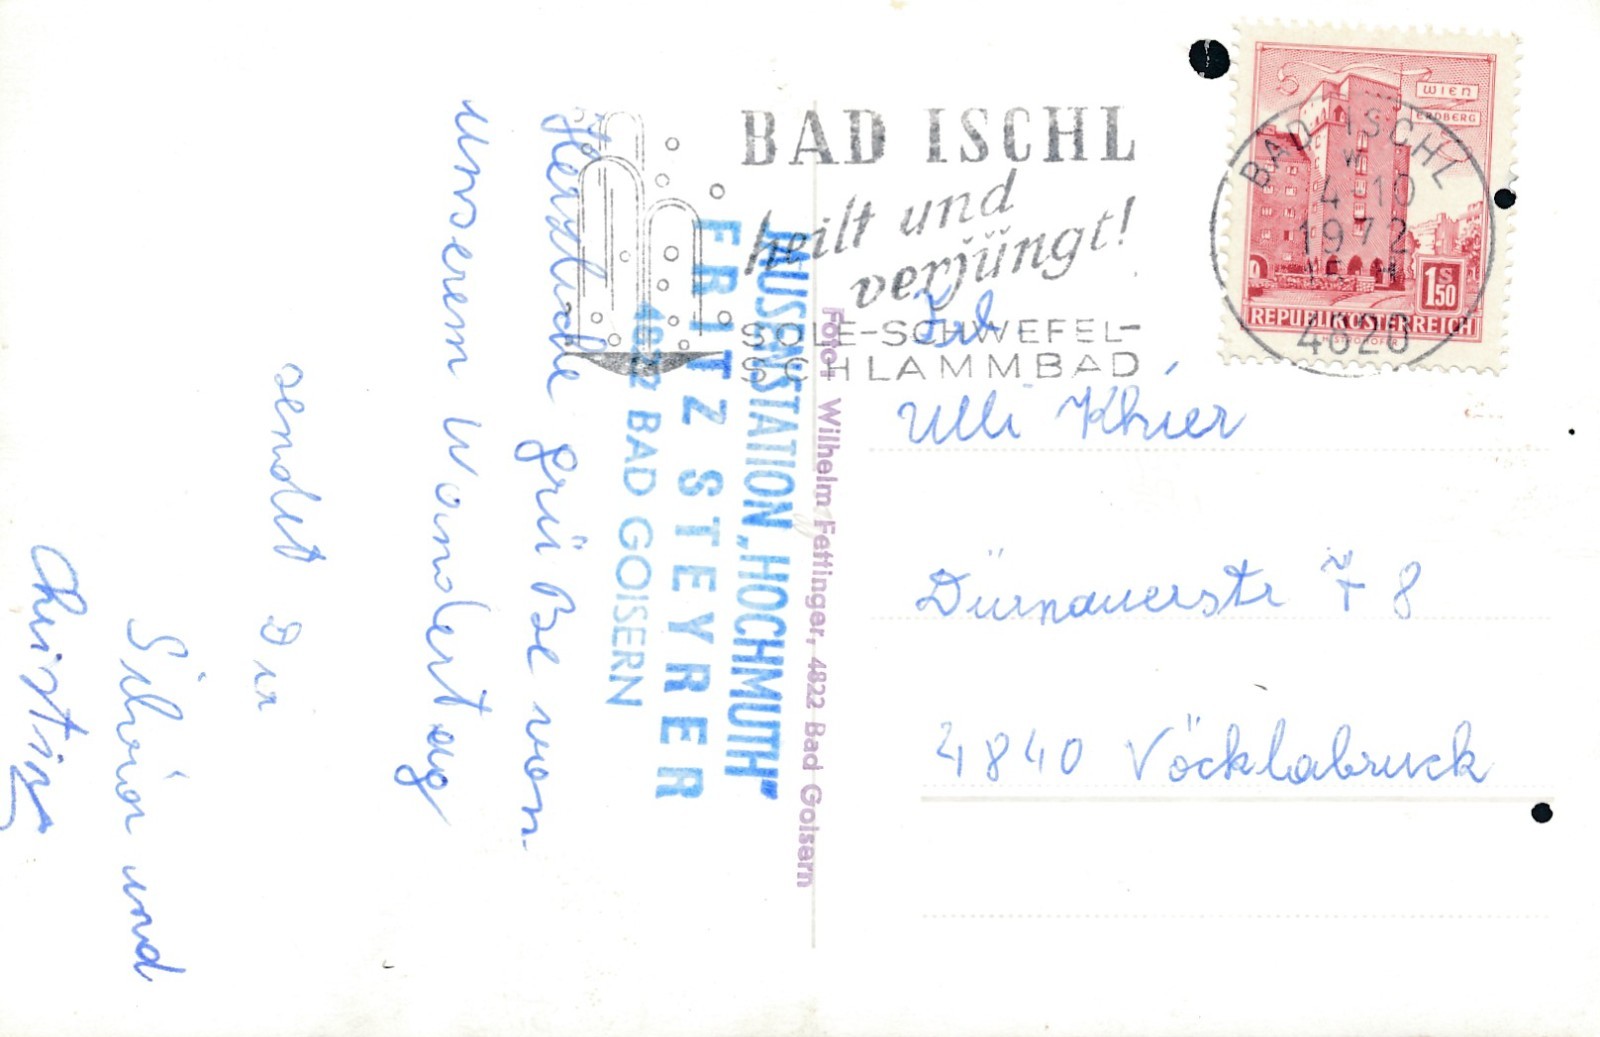 Herzliche Grüße von
unserem Wandertag
sendet Dir
Silvia und
Christina
JAUSENSTATION „HOCHMUTH"
FRITZ STEYRER
4822 BAD GOISERN
Foto: Wilhelm Fettinger, 4822 Bad Goisern
BAD ISCHL
heilt und
verjüngt!
SOLE-SCHWEFEL-
SCHLAMMBAD
WIEN
ERDBERG
1 S 50
REPUBLIK ÖSTERREICH
BAD ISCHL
w
4-10
1972
4820
Ulli Khier
Dürnauerstr 78
4840 Vöcklabruck